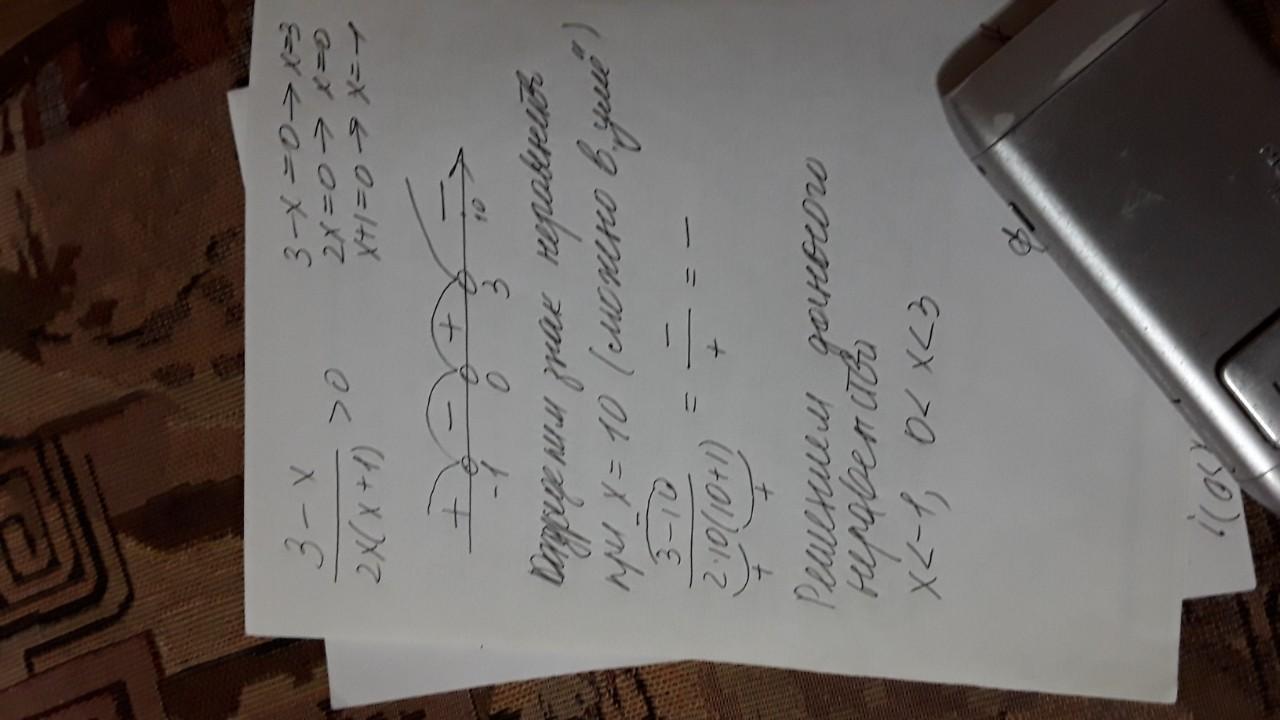 3-x/2x(x+1) >0
3-x=0→x=3
2x=0→x=0
x+1=0→x=-1
+ - + -
-1 0 3 10
Определим знак неравенств
при x=10 (можно в "уме")
3-10/2·10(10+1) = -/+ = -
Решением данного
неравенства
x<-1, 0<x<3